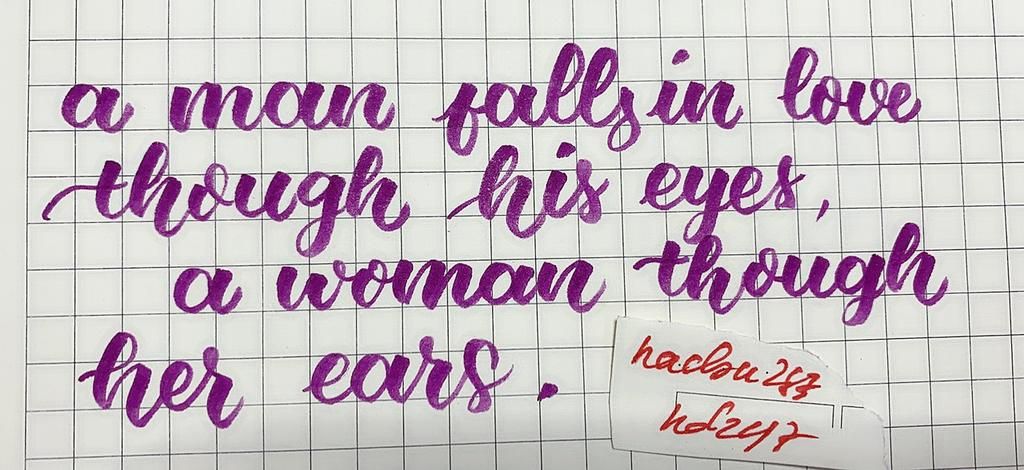 a man falls in love
though his eyes,
a woman though
her ears.